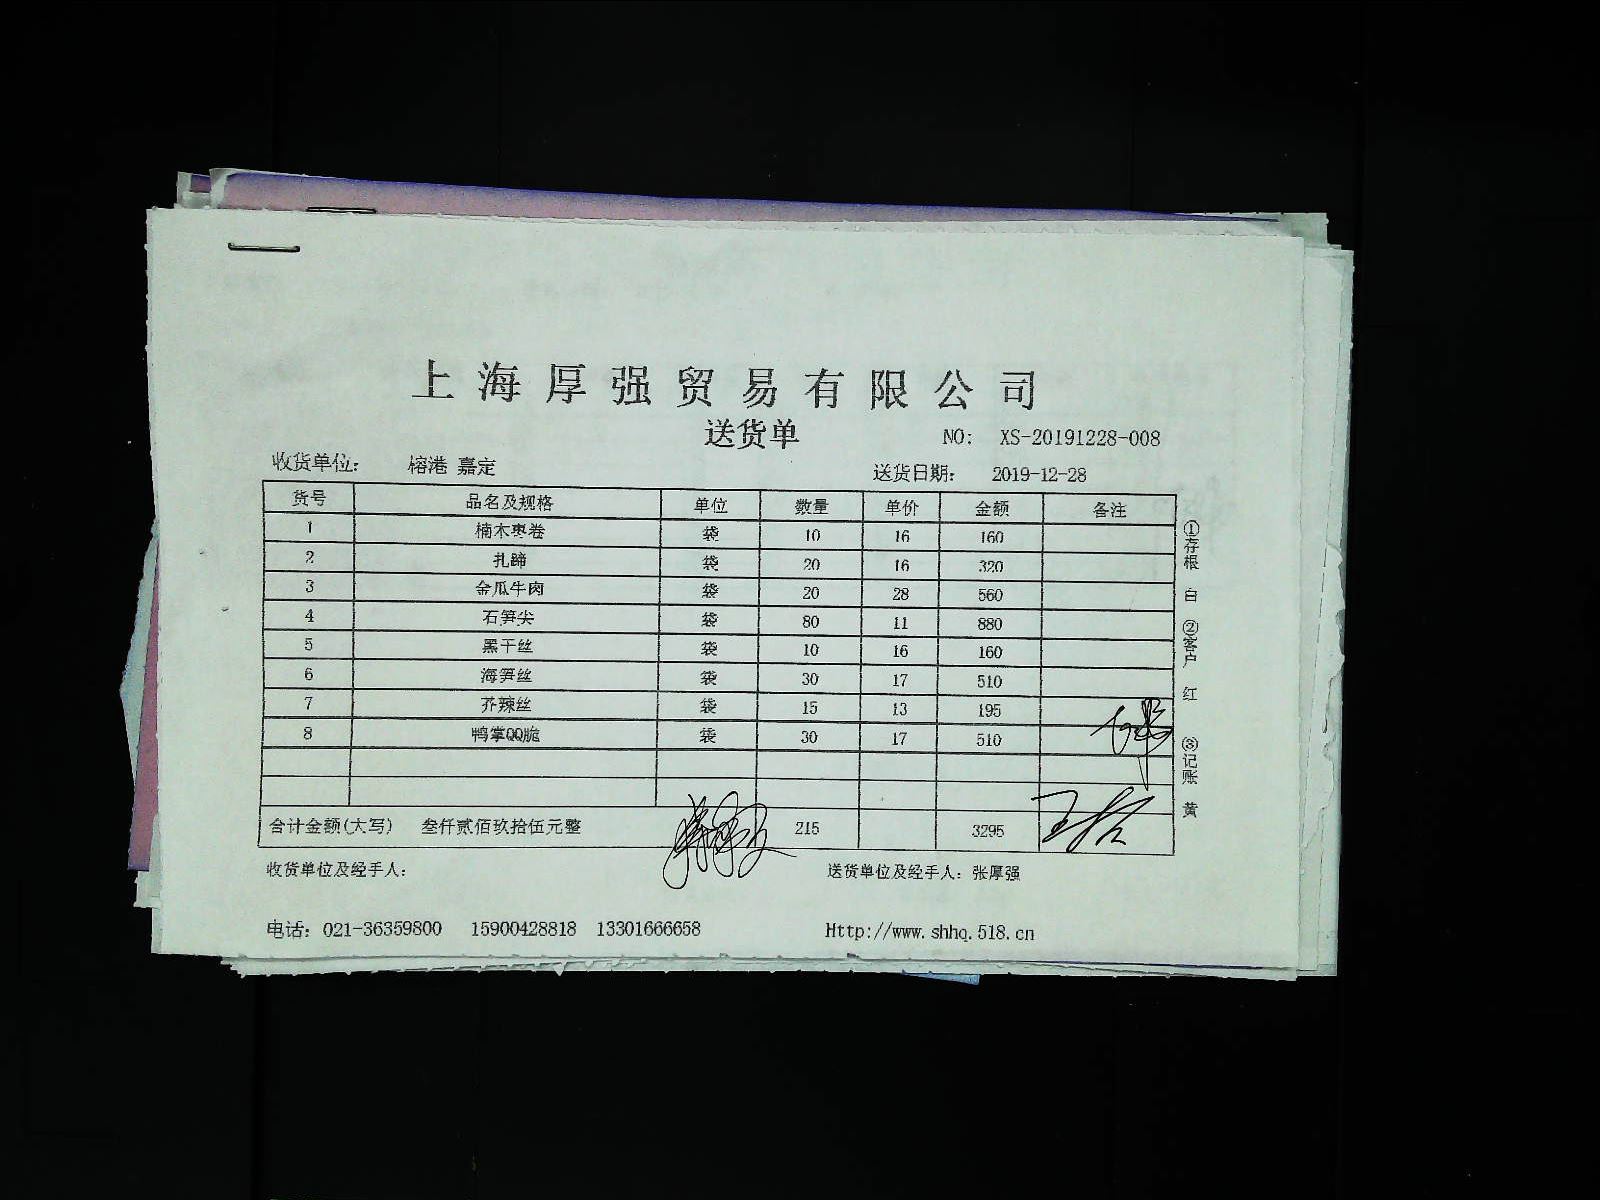 上海厚强贸易有限公司
送货单
NO: XS-20191228-008
收货单位: 榕港 嘉定 送货日期: 2019-12-28
货号 品名及规格 单位 数量 单价 金额 备注
1 楠木枣卷 袋 10 16 160
2 扎蹄 袋 20 16 320
3 金瓜牛肉 袋 20 28 560
4 石笋尖 袋 80 11 880
5 黑干丝 袋 10 16 160
6 海笋丝 袋 30 17 510
7 芥辣丝 袋 15 13 195
8 鸭掌QQ脆 袋 30 17 510
合计金额(大写) 叁仟贰佰玖拾伍元整 215 3295
①存根 白 ②客户 红 ③记账 黄
收货单位及经手人: 送货单位及经手人: 张厚强
电话: 021-36359800 15900428818 13301666658 Http://www.shhq.518.cn